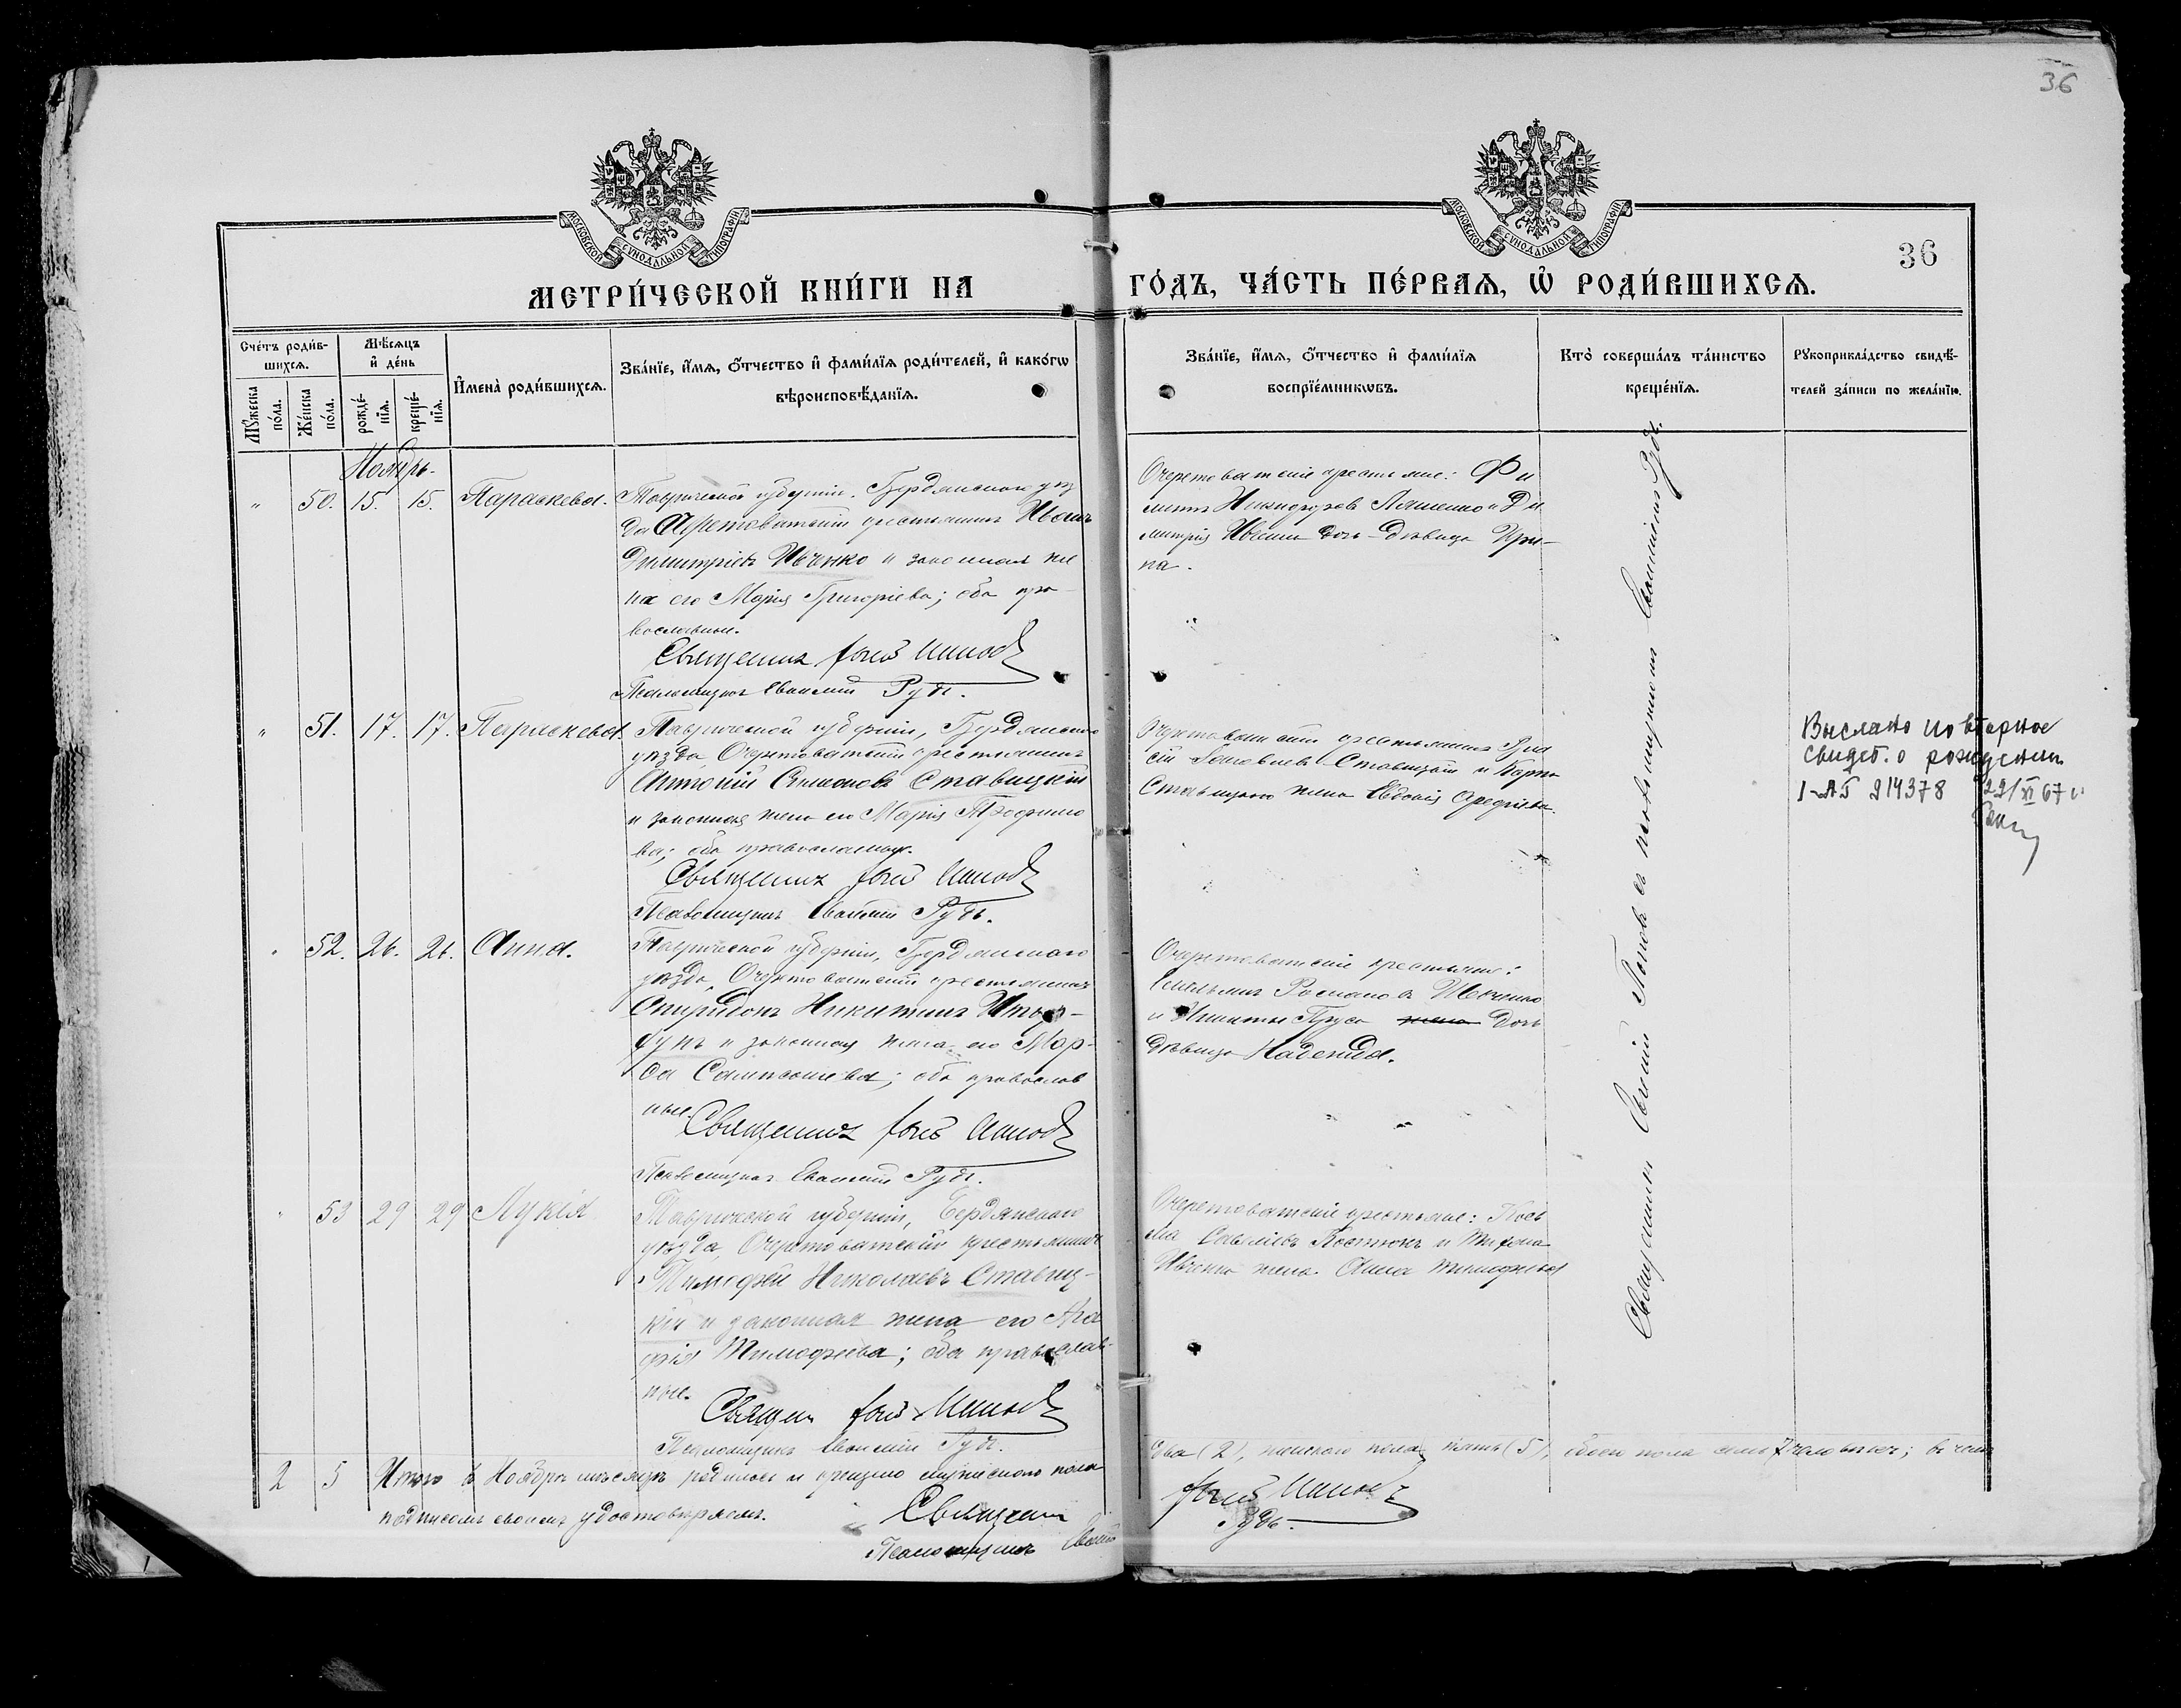 36
МОСКОВСКОЙ СУНОДАЛЬНОЙ ТИПОГРАФІИ
МОСКОВСКОЙ СУНОДАЛЬНОЙ ТИПОГРАФІИ
36
МЕТРИ́ЧЕСКОЙ КНИ́ГИ НА ГО́ДЪ, ЧА́СТЬ ПЕ́РВАѦ, Ѽ РОДИ́ВШИХСѦ.
Сче́тъ роди́в-
шихсѧ.
Мѣ́сѧцъ
и҆ де́нь
Мꙋ́жеска
по́ла.
Же́нска
по́ла.
рожде́-
нїѧ.
креще́-
нїѧ.
И҆мена̀ роди́вшихсѧ.
Зва́нїе, и҆́мѧ, ѻ҆́тчество и҆ фами́лїѧ роди́телей, и҆ како́гѡ
вѣроисповѣ́данїѧ.
Зва́нїе, и҆́мѧ, ѻ҆́тчество и҆ фами́лїѧ
воспрїе́мникѡвъ.
Кто̀ соверша́лъ та́инство
креще́нїѧ.
Рꙋкоприкла́дство свидѣ́-
телей за́писи по жела́нїю.
Ноябрь.
" 50. 15. 15. Параскева.
Таврической губерніи, Бердянскаго уѣз
да Очеретоватскій крестьянинъ Иванъ
Димитріевъ Ивченко и законная же
на его Марія Григоріева; оба пра
вославные.
Священникъ
Псаломщикъ Евфимій Рудь.
Очеретоватскіе крестьяне: Фи
Никифоровъ Ляшенко и Ди
митрія дочь девица Ири-
на.
" 51. 17. 17. Параскева.
Таврической губерніи, Бердянскаго
уѣзда, Очеретоватскій крестьянинъ
Антоній Симоновъ Ставицкій
и законная жена его Марія Трофимо
ва; оба православные.
Священникъ
Псаломщикъ Евфимій Рудь.
Очеретоватскій крестьянинъ
Ставицкій и Карпа
Ставицкаго жена Евдокія
Выслано повторное
свидет. о рождении
I-АБ 214378 22/XI 67 г.
" 52. 26. 26. Анна.
Таврической губерніи, Бердянскаго
уѣзда, Очеретоватскій крестьянинъ
Спиридонъ Никитинъ
и законная жена его Мар-
фа Сампсонова; оба православ
ные.
Священникъ
Псаломщикъ Евфимій Рудь.
Очеретоватскіе крестьяне:
Романовъ Ивченко
и Никиты дочь
дѣвица Надежда.
" 53 29 29 Лукія
Таврической губерніи, Бердянскаго
уѣзда, Очеретоватскій крестьянинъ
Тимофей Николаевъ Ставиц-
кій и законная жена его Ага
фія Тимофеева; оба православ-
ные.
Священ
Псаломщикъ Евфимій Рудь.
Очеретоватскіе крестьяне: Кось
ма Савеліевъ Костюкъ и Тихона
Ивченко жена Анна Тимофеева
Священникъ Поповъ съ псаломщикомъ Евфиміемъ Рудь.
2 5 Итого въ Ноябрѣ мѣсяцѣ родилось и крещено мужескаго пола
два (2), женскаго пола пять (5), обоего пола семь 7 человѣкъ; въ чемъ
подписомъ своимъ удостовѣряемъ.
Священникъ
Псаломщикъ Евфимій Рудь.